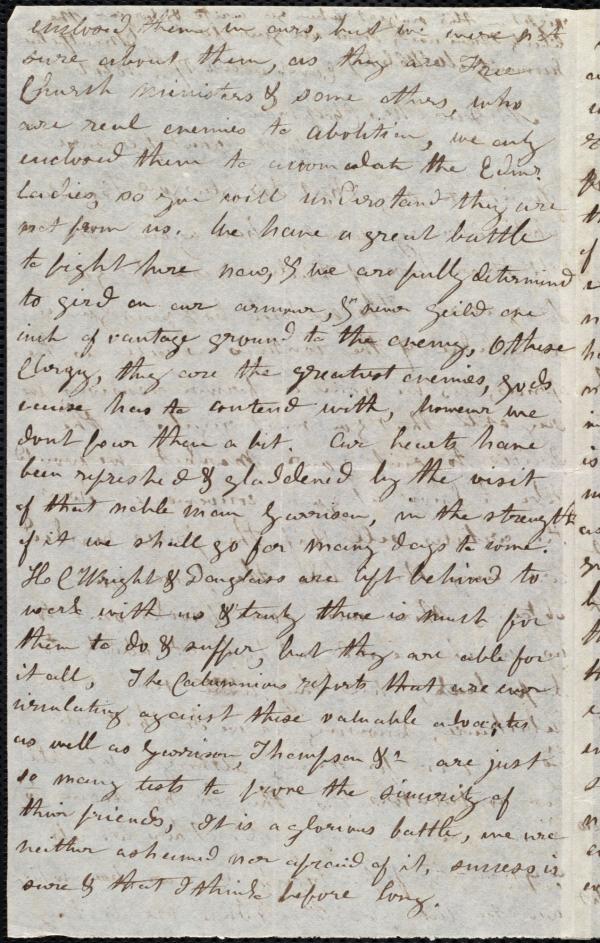 enclosed them in ours, but we were not
sure about them, as they are Free
Church ministers & some others, who
are real enemies to abolition, we only
enclosed them to accomodate the Edinr
Ladies, so you will understand they are
not from us. We have a great battle
to fight here now, & we are fully determind
to gerd on our armour, & never yeild one
inch of vantage ground to the enemy, O these
Clergy, they are the greatest enemies, gods
cause has to contend with, however we
dont fear them a bit. Our hearts have
been refreshed & gladdened by the visit
of that noble man Garrison, in the strength
of it we shall go for many days to come.
H C Wright & Douglass are left behind to
work with us & truly there is much for
them to do & suffer, but they are able for
it all, The Calumnious reports that are ever
circulating against these valuable advocates
as well as Garrison, Thompson &c are just
so many tests to prove the sincerity of
their friends, It is a glorious battle, we are
neither ashamed nor afraid of it, success is
sure & that I think before long.